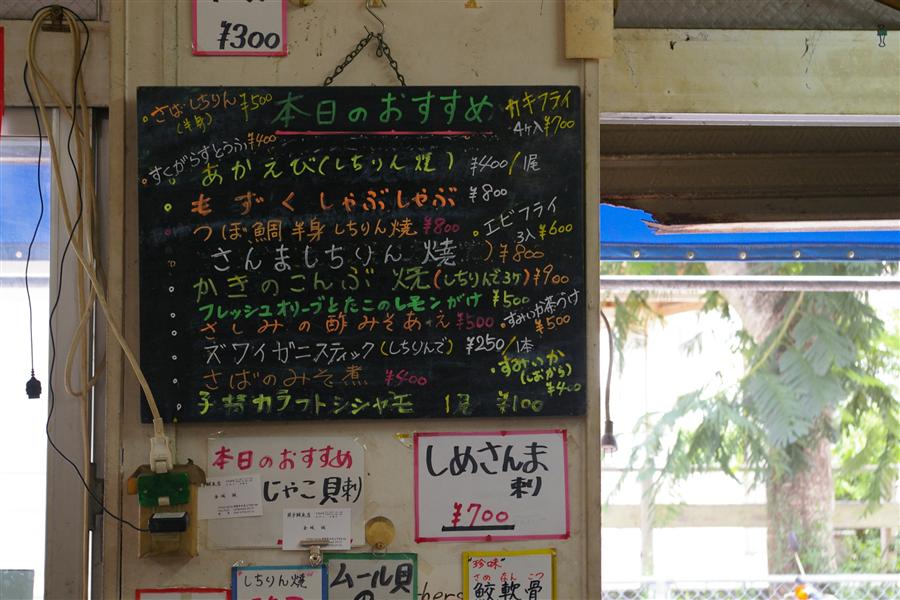 ¥300
さば しちりん ¥500
(半身)
本日のおすすめ
カキフライ
4ヶ入 ¥700
すくがらすとうふ ¥400
あかえび(しちりん焼) ¥400/1尾
もずくしゃぶしゃぶ ¥800
つぼ鯛半身しちりん焼 ¥800
エビフライ
3入 ¥600
さんましちりん焼 ) ¥800
かきのこんぶ焼(しちりんで3ヶ) ¥900
フレッシュオリーブとたこのレモンがけ ¥500
さしみの酢みそあえ ¥500
すみいか茶づけ
¥500
ズワイガニスティック(しちりんで) ¥250/1本
すみいか
(しおから)
¥400
さばのみそ煮 ¥400
子持カラフトシシャモ 1尾 ¥100
本日のおすすめ
じゃこ貝刺
しめさんま
刺
¥700
"しちりん焼"
ムール貝
"珍味"
さめ なん こつ
鮫軟骨